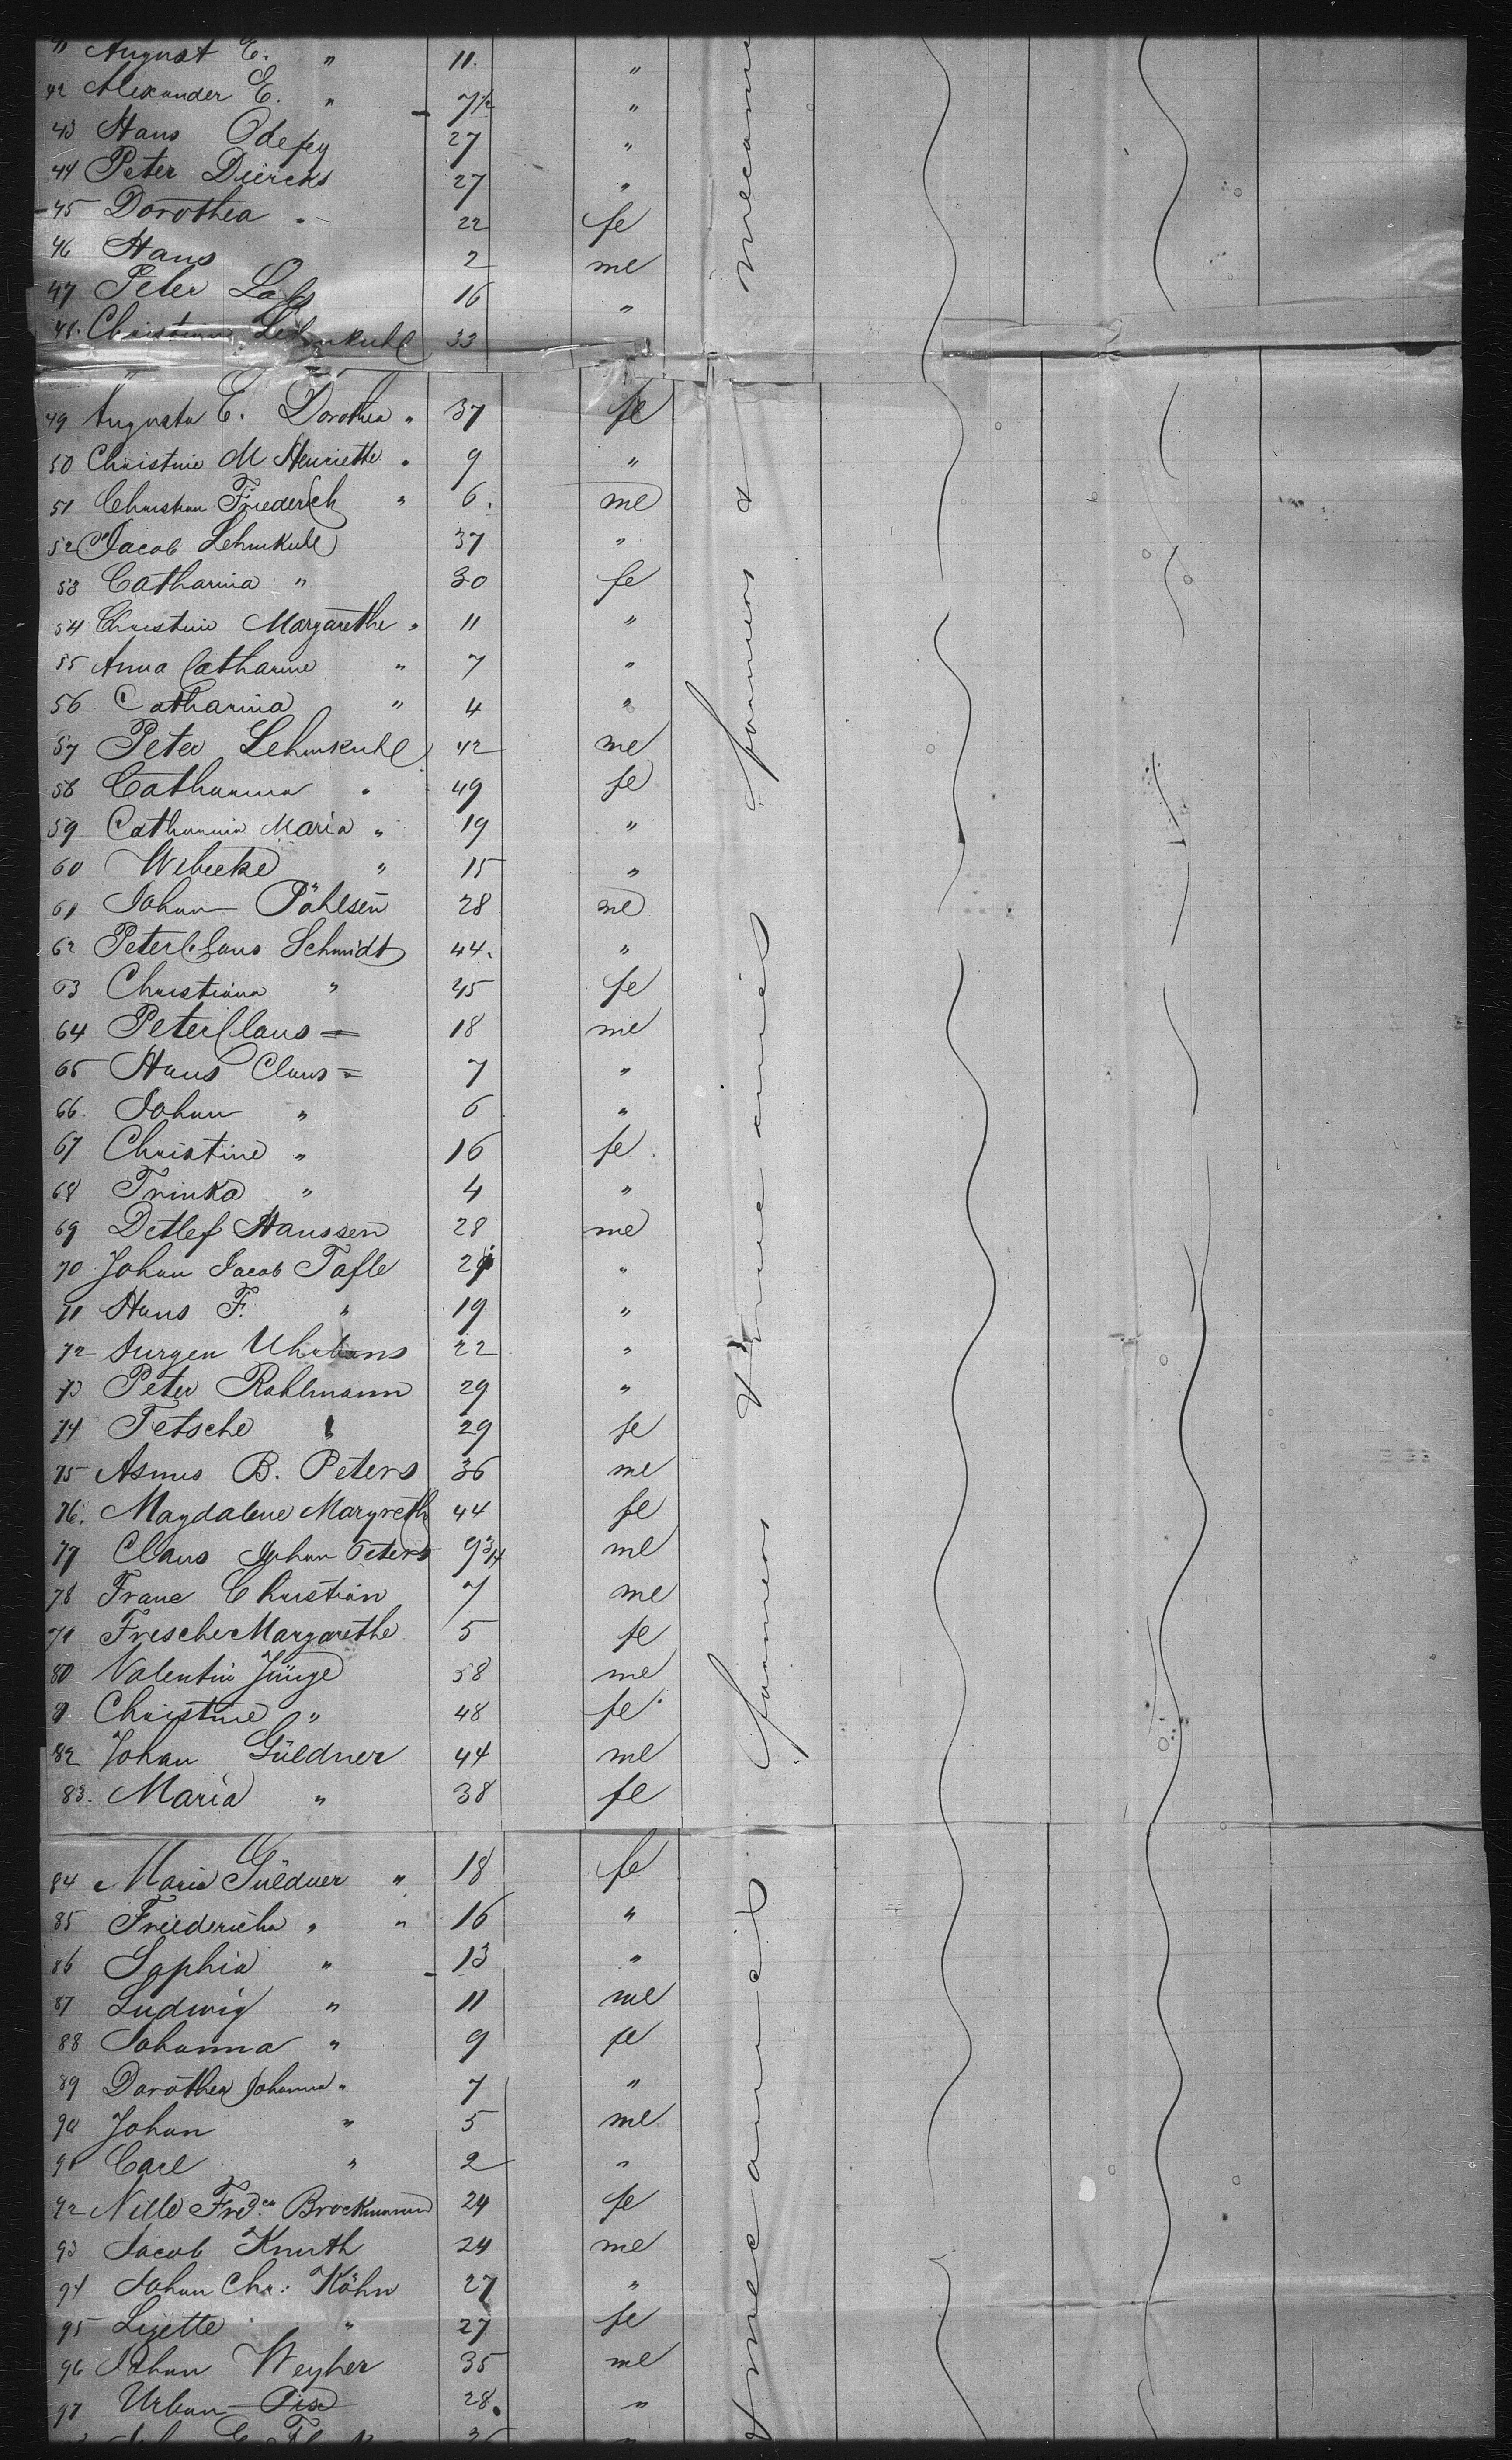 41 August E. " 11. "
42 Alexander E. " 7½ "
43 Hans Odefey 27 "
44 Peter Diercks 27 "
45 Dorothea " 22 fe
46 Hans 2 me
47 Peter Lafs 16 "
48. Christian Lehmkuhl 33
49 Augusta C. Dorothea " 37 fe
50 Christine M Henriette " 9 "
51 Christian Friederich " 6. me
52 Jacob Lehmkuhl 37 "
53 Catharina " 30 fe
54 Christine Margarethe " 11 "
55 Anna Catharine " 7 "
56 Catharina " 4 "
57 Peter Lehmkuhl 42 me
58 Catharina " 49 fe
59 Catharina Maria " 19 "
60 Wibecke " 15 "
61 Johan Pöhlsen 28 me
62 Peter Claus Schmidt 44. "
63 Christiana " 45 fe
64 Peter Claus = 18 me
65 Hans Claus = 7 "
66. Johan " 6 "
67 Christine " 16 fe
68 Trinka " 4 "
69 Detlef Hanssen 28 me
70 Johan Jacob Tafle "
71 Hans F. " 19 "
72 Jurgen 22 "
73 Peter Rahlmann 29 "
74 Tetsche " 29 fe
75 Asmus B. Peters 36 me
76. Magdalene Margreth 44 fe
77 Claus Johan Peters 9¾ me
78 Franc Christian 7 me
79 Fresche Margarethe 5 fe
80 Valentin Jünge 58 me
81. Christine " 48 fe
82 Johan Güldner 44 me
83. Maria " 38 fe
84 Maria Güldner " 18 fe
85 Friedericha " " 16 "
86 Sophia " 13 "
87 Ludwig " 11 me
88 Johanna " 9 fe
89 Dorothea Johanna " 7 "
90 Johan " 5 me
91 Carl " 2 "
92 Nille Fred.ca Brockmann 24 fe
93 Jacob Knuth 24 me
94 Johan Chr: Köhn 27 "
95 Lisette " 27 fe
96 Johan Weyher 35 me
97 Urban 28. "
farmers & mecanic
farmers & mecanic
mecanic